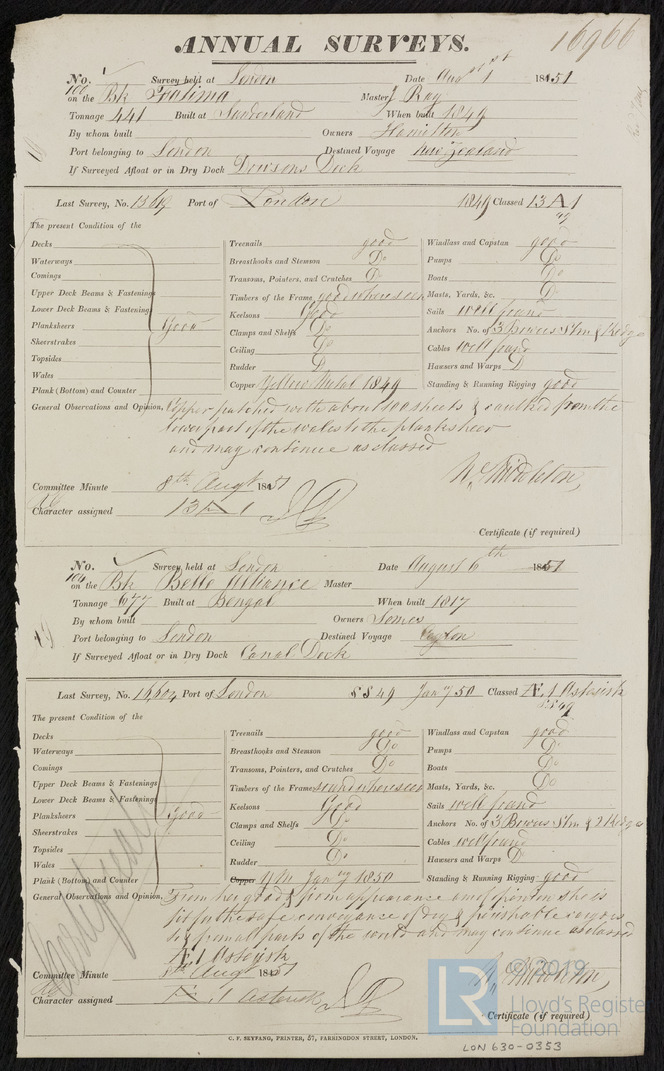 ANNUAL SURVEYS.
16966
No. 100 Survey held at London Date Augst 1 1851
on the Bk Fatima Master J Ray
Tonnage 441 Built at Sunderland When built 1849
By whom built Owners Hamilton
Port belonging to London Destined Voyage New Zealand
If Surveyed Afloat or in Dry Dock Dowsons Dock
Last Survey, No. Port of London 1849 Classed 13 A 1
49
The present Condition of the
Decks Treenails good Windlass and Capstan good
Waterways Breasthooks and Stemson Do Pumps Do
Comings Transoms, Pointers, and Crutches Do Boats Do
Upper Deck Beams & Fastenings Timbers of the Frame good where seen Masts, Yards, &c. Do
Lower Deck Beams & Fastenings Keelsons Good Sails well found
Planksheers Good Clamps and Shelfs Do Anchors No. of 3 Bowers Stm & Kedge
Sheerstrakes Ceiling Do Cables well found
Topsides Rudder Do Hawsers and Warps D
Wales Copper Yellow Metal 1849 Standing & Running Rigging good
Plank (Bottom) and Counter
General Observations and Opinion, Copper patched with about 100 sheets & caulked from the
lower part of the wales to the planksheer
and may continue as classed
N. Middleton
Committee Minute 8th Augt 1851
Character assigned 13 A 1
Certificate (if required)
No. 104 Survey held at London Date August 6th 1851
on the Bk Belle Alliance Master
Tonnage 677 Built at Bengal When built 1817
By whom built Owners Somes
Port belonging to London Destined Voyage Ceylon
If Surveyed Afloat or in Dry Dock Canal Dock
Last Survey, No. 16,604 Port of London SS 49 Jany 50 Classed Æ 1 Asterisk
SS 49
The present Condition of the
Decks Treenails good Windlass and Capstan good
Waterways Breasthooks and Stemson Do Pumps Do
Comings Transoms, Pointers, and Crutches Do Boats Do
Upper Deck Beams & Fastenings Timbers of the Frame sound where seen Masts, Yards, &c. Do
Lower Deck Beams & Fastenings Keelsons Good Sails well found
Planksheers Good Clamps and Shelfs Do Anchors No. of 3 Bowers Stm & 2 Kedge
Sheerstrakes Ceiling Do Cables well found
Topsides Rudder Do Hawsers and Warps D
Wales Copper Y M Jany 1850 Standing & Running Rigging good
Plank (Bottom) and Counter
General Observations and Opinion, From her good & firm appearance am of opinion she is
fit for the safe conveyance of dry & perishable cargoes
to & from all parts of the world and may continue as classed
Æ 1 Asterisk
N. Middleton
Committee Minute 8th Augt 1851
Character assigned Æ 1 Asterisk
Certificate (if required)
C. F. SEYFANG, PRINTER, 57, FARRINGDON STREET, LONDON.
LON 630-0353
LR
© 2019
Lloyd's Register
Foundation